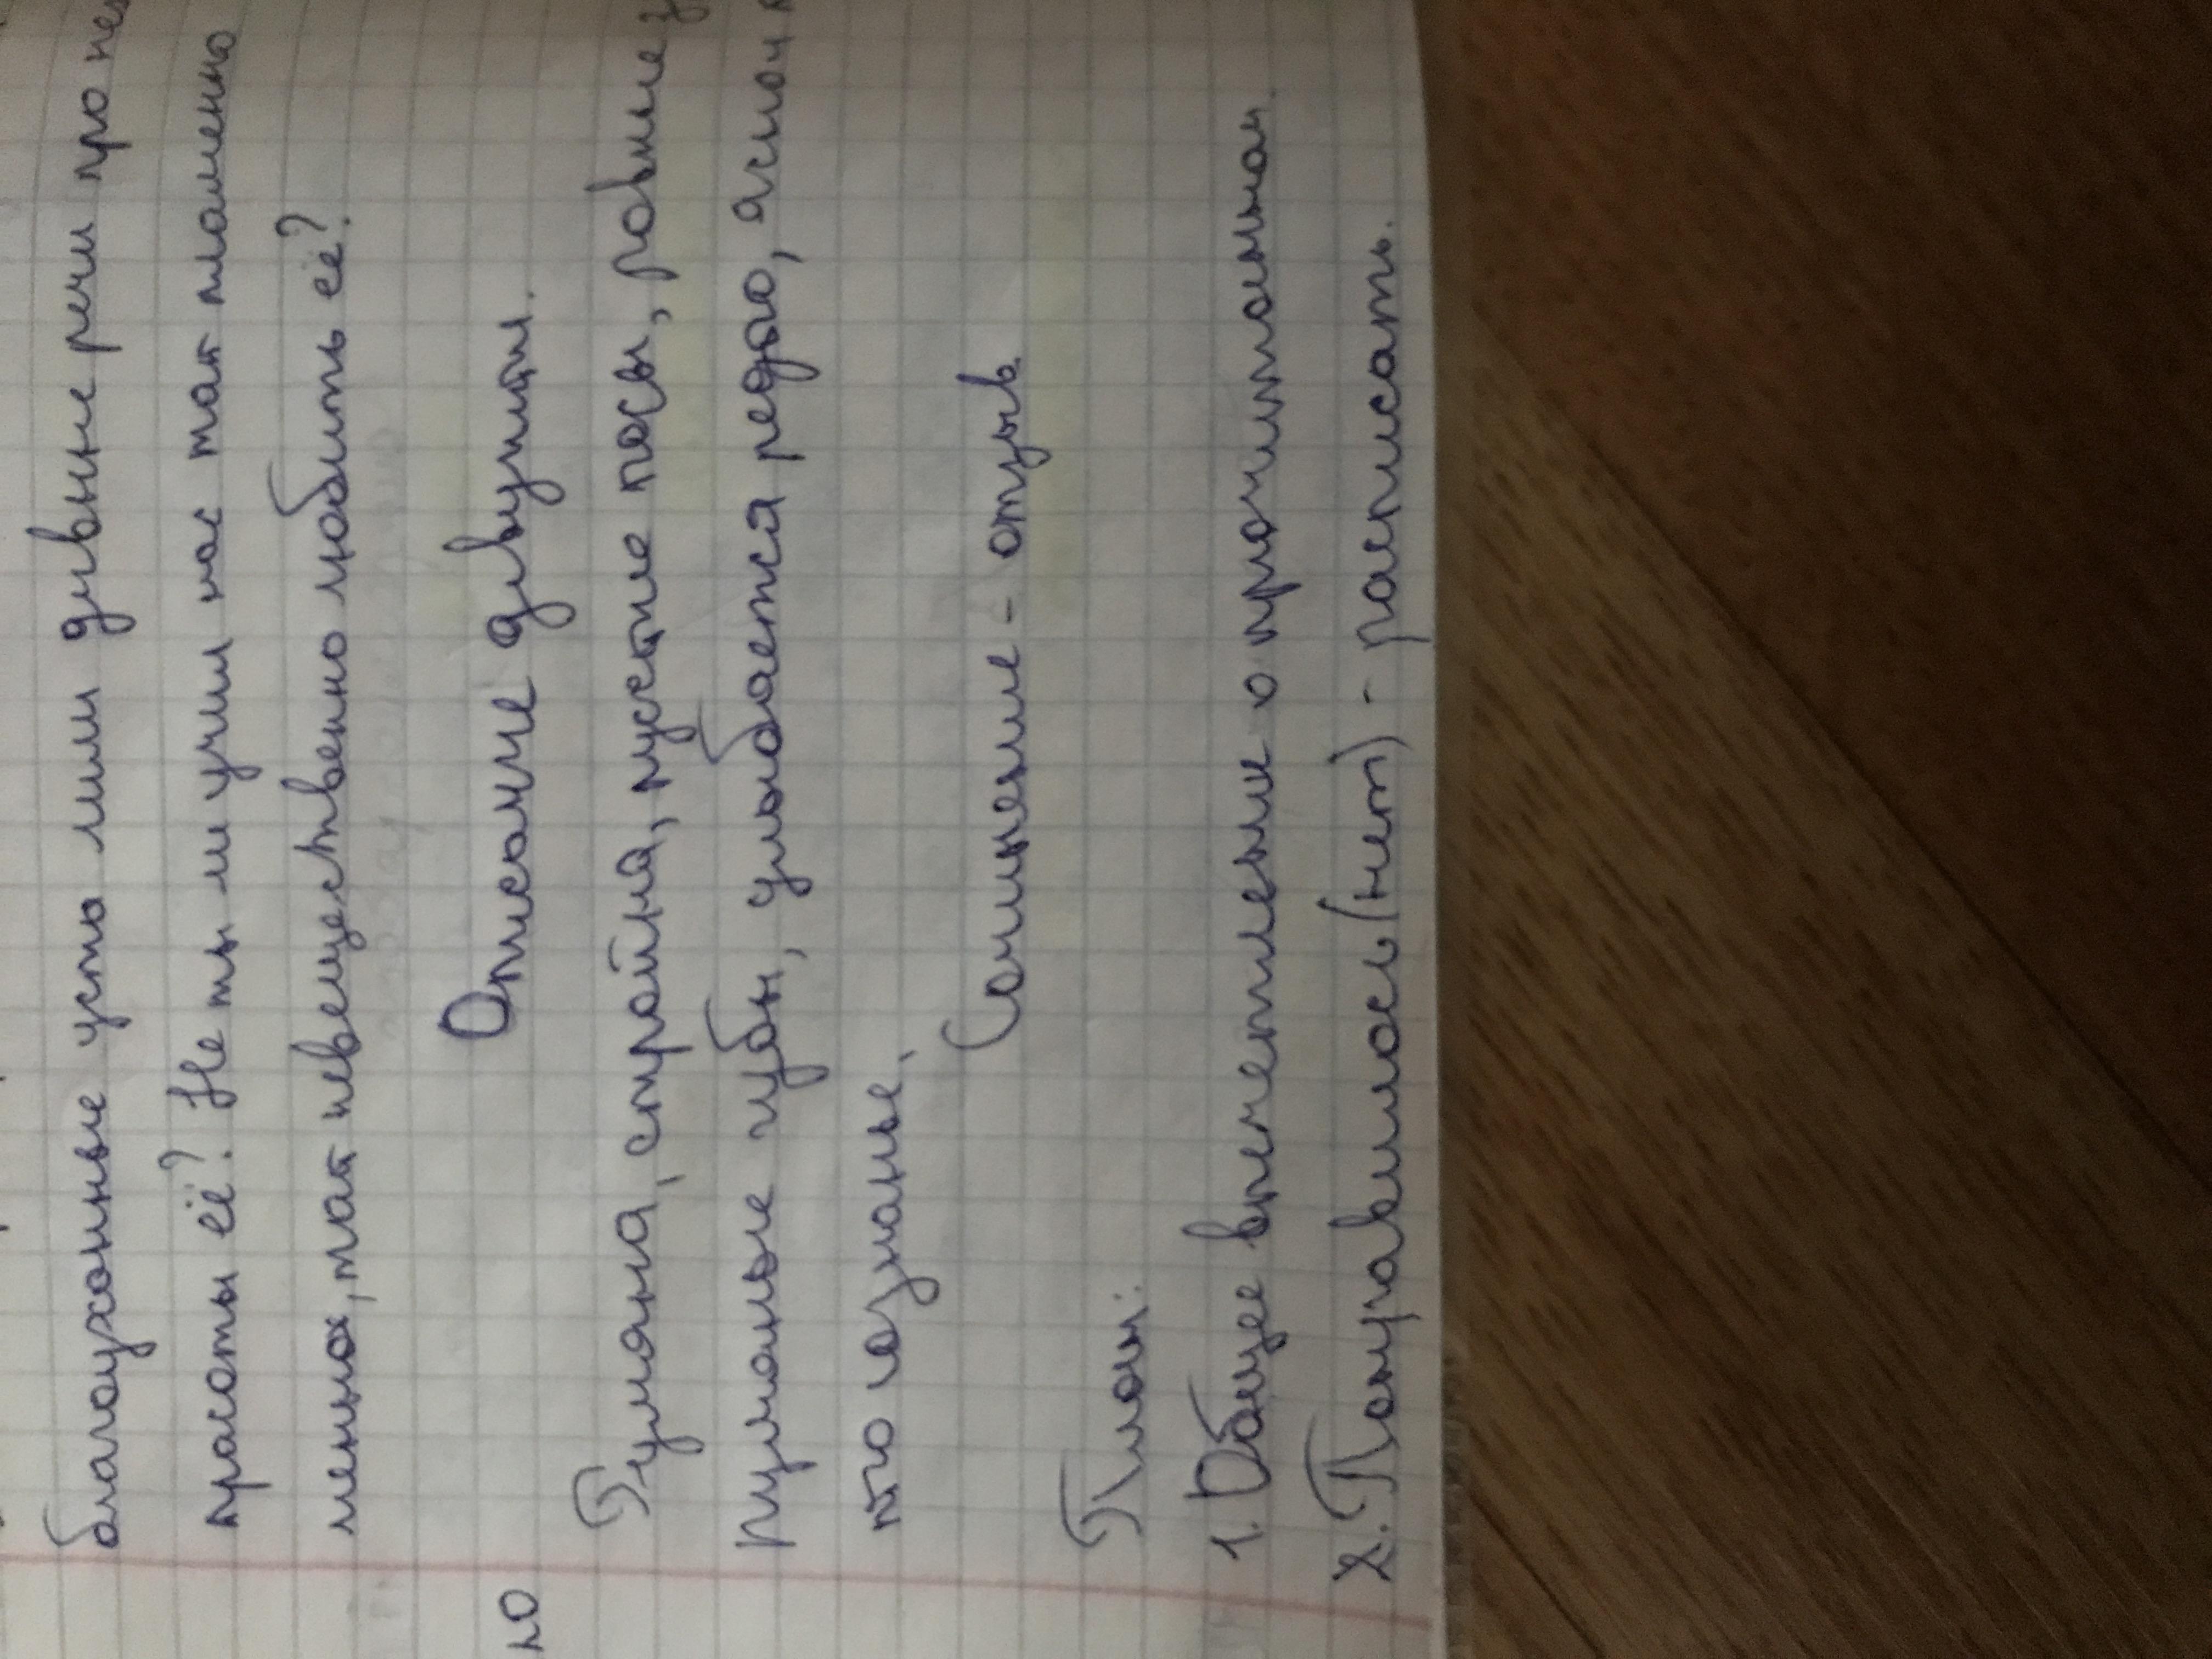 благоуханные уста лили дивные речи про
красоты её? Не ты ли учил нас так пламенно
менно, так невещественно любить её?
Описание девушки.
Румяна, стройна, густые косы, ровные
румяные губы, улыбается редко,
Сочинение - отзыв
План:
1. Общее впечатление о прочитанном.
2. Понравилось (нет) - расписать.